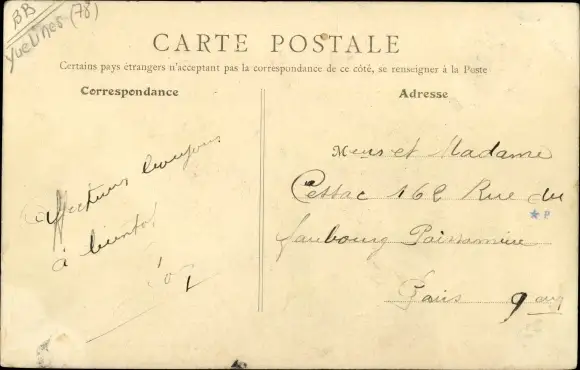 BB
Yvelines (78)
CARTE POSTALE
Certains pays étrangers n'acceptant pas la correspondance de ce côté, se renseigner à la Poste
Correspondance
Adresse
Affectueux bonjours
à bientôt
Meur et Madame
Cessac 162 Rue du
faubourg Poissonnière
Paris 9